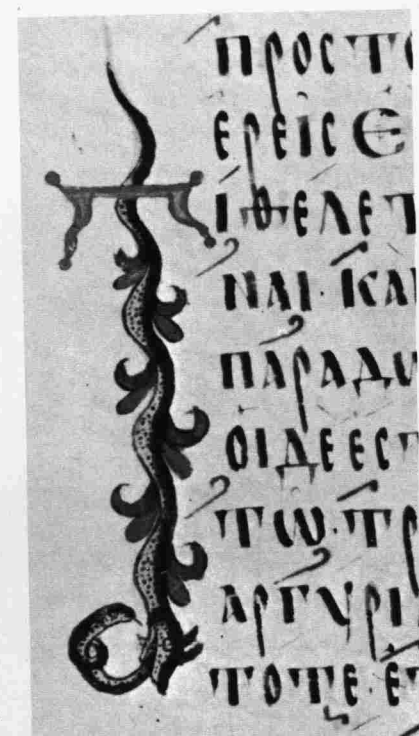 ΠΡΟϹΤΟ
ΕΡΕΙϹ Ε
ΤΪΘΕΛΕΤ
ΝΑΙ· ΚΑΙ
ΠΑΡΑΔΩ
ΟΙΔΕΕϹΤ
ΤΩ· ΤΡ
ΑΡΓΥΡΙ
ΤΟΤΕ· Ε